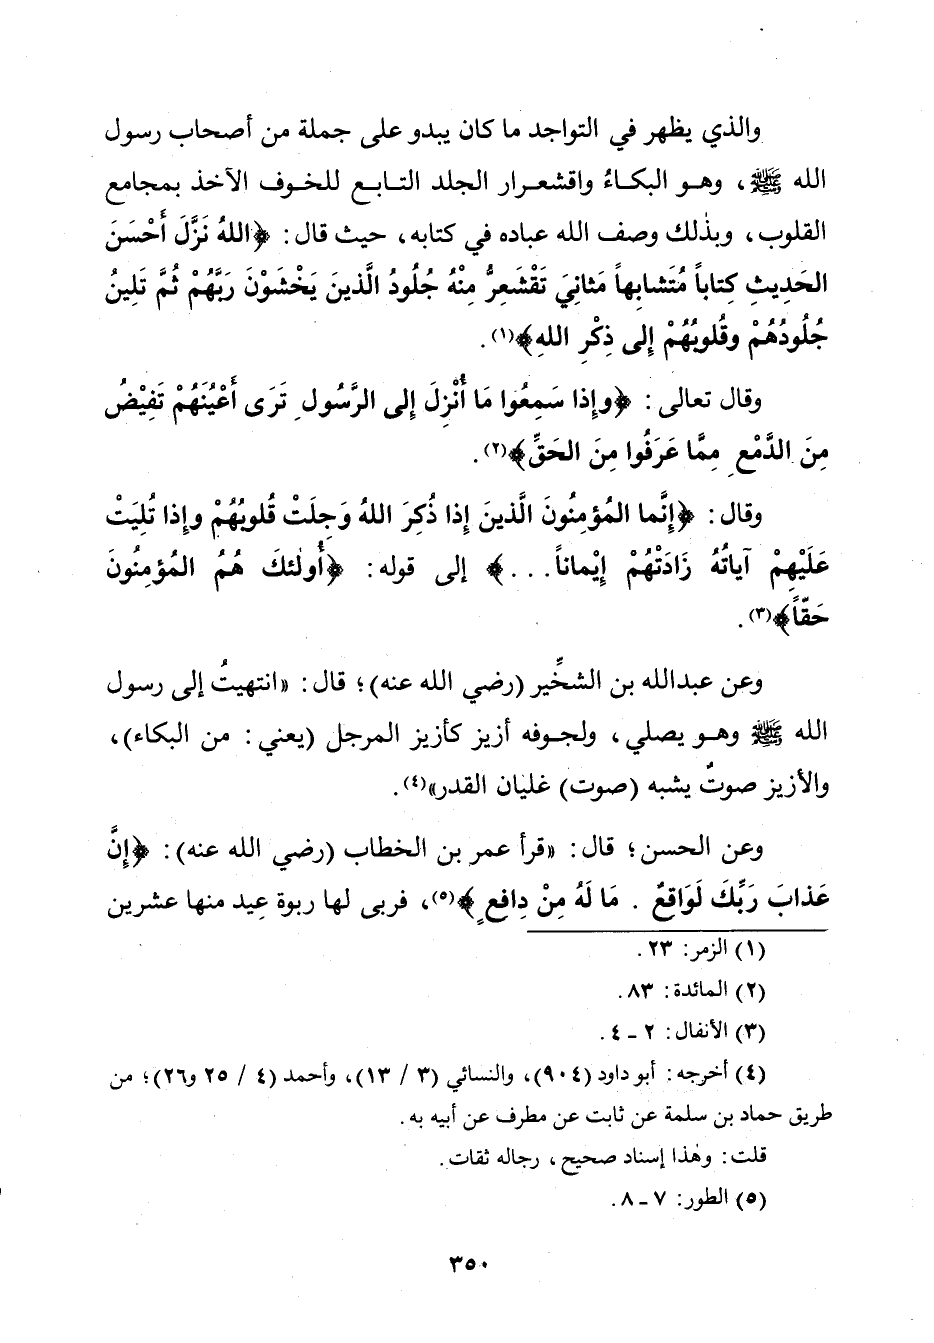 والذي يظهر في التواجد ما كان يبدو على جملة من أصحاب رسول
الله ﷺ، وهـو البكـاءُ واقشعـرار الجلد التـابـع للخـوف الآخذ بمجامع
القلوب، وبذٰلك وصف الله عباده في كتابه، حيث قال: ﴿اللهُ نَزَّلَ أَحْسَنَ
الحَدِيثِ كِتاباً مُتَشابِهاً مَثانِيَ تَقْشَعِرُّ مِنْهُ جُلُودُ الَّذينَ يَخْشَوْنَ رَبَّهُمْ ثُمَّ تَلِينُ
جُلُودُهُمْ وقُلوبُهُمْ إِلى ذِكْرِ اللهِ﴾(١).
وقال تعالى: ﴿وإِذا سَمِعُوا مَا أُنْزِلَ إِلى الرَّسُولِ تَرَى أَعْيُنَهُمْ تَفِيْضُ
مِنَ الدَّمْعِ مِمَّا عَرَفُوا مِنَ الحَقِّ﴾(٢).
وقال: ﴿إِنَّما المُؤمِنُونَ الَّذينَ إِذا ذُكِرَ اللهُ وَجِلَتْ قُلوبُهُمْ وإِذا تُلِيَتْ
عَلَيْهِمْ آياتُهُ زَادَتْهُمْ إِيْماناً...﴾ إلى قوله: ﴿أُولٰئكَ هُمُ المُؤمِنُونَ
حَقّاً﴾(٣).
وعن عبدالله بن الشخِّير (رضي الله عنه)؛ قال: «انتهيتُ إلى رسول
الله ﷺ وهـو يصلي، ولجـوفه أزيز كأزيز المرجل (يعني: من البكاء)،
والأزيز صوتٌ يشبه (صوت) غليان القدر»(٤).
وعن الحسن؛ قال: «قرأ عمر بن الخطاب (رضي الله عنه): ﴿إِنَّ
عَذابَ رَبِّكَ لَوَاقِعٌ . مَا لَهُ مِنْ دِافعٍ﴾(٥)، فربى لها ربوة عِيد منها عشرين
(١) الزمر: ٢٣.
(٢) المائدة: ٨٣.
(٣) الأنفال: ٢ ـ ٤.
(٤) أخرجه: أبو داود (٩٠٤)، والنسائي (٣ / ١٣)، وأحمد (٤ / ٢٥ و٢٦)؛ من
طريق حماد بن سلمة عن ثابت عن مطرف عن أبيه به.
قلت: وهٰذا إسناد صحيح، رجاله ثقات.
(٥) الطور: ٧ ـ ٨.
٣٥٠